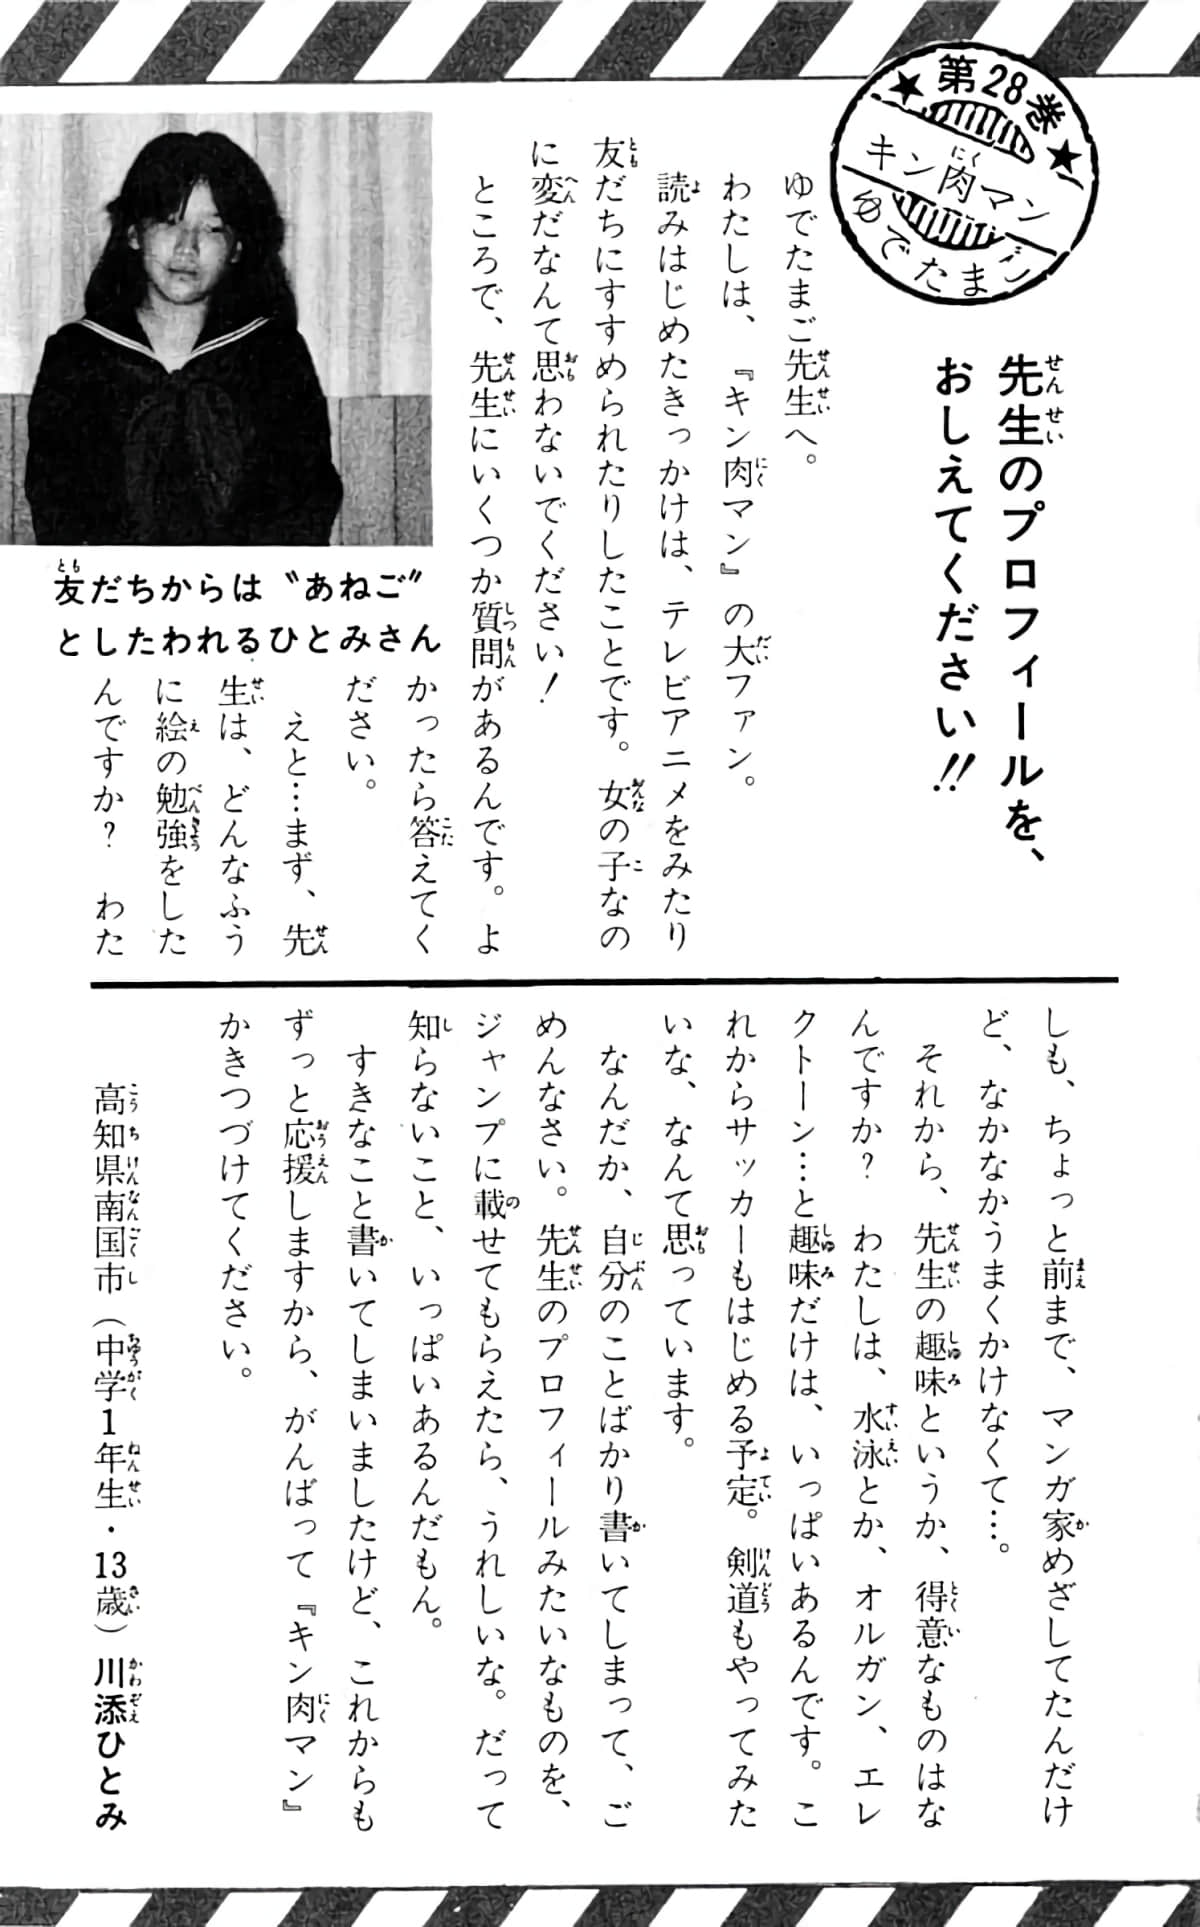 第28巻
キン肉マン
ゆでたまご
先生のプロフィールを、
おしえてください!!
ゆでたまご先生へ。
わたしは、『キン肉マン』の大ファン。
読みはじめたきっかけは、テレビアニメをみたり
友だちにすすめられたりしたことです。女の子なの
に変だなんて思わないでください!
ところで、先生にいくつか質問があるんです。よ
かったら答えてく
ださい。
えと…まず、先
生は、どんなふう
に絵の勉強をした
んですか? わた
友だちからは〝あねご〟
としたわれるひとみさん
しも、ちょっと前まで、マンガ家めざしてたんだけ
ど、なかなかうまくかけなくて…。
それから、先生の趣味というか、得意なものはな
んですか? わたしは、水泳とか、オルガン、エレ
クトーン…と趣味だけは、いっぱいあるんです。こ
れからサッカーもはじめる予定。剣道もやってみた
いな、なんて思っています。
なんだか、自分のことばかり書いてしまって、ご
めんなさい。先生のプロフィールみたいなものを、
ジャンプに載せてもらえたら、うれしいな。だって
知らないこと、いっぱいあるんだもん。
すきなこと書いてしまいましたけど、これからも
ずっと応援しますから、がんばって『キン肉マン』
かきつづけてください。
高知県南国市(中学1年生・13歳)川添ひとみ